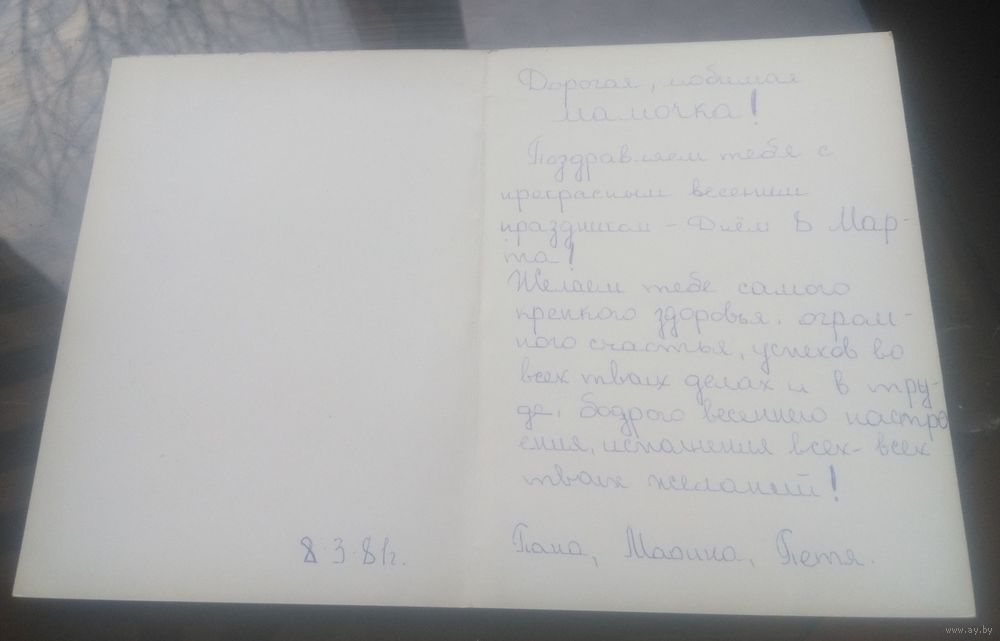 Дорогая, любимая
мамочка!
Поздравляем тебя с
прекрасным весенним
праздником - Днём 8 Мар-
та!
Желаем тебе самого
крепкого здоровья, огром-
ного счастья, успехов во
всех твоих делах и в тру-
де, бодрого весеннего настро
ения, исполнения всех-всех
твоих желаний!
Папа, Маринка, Петя.
8.3.81г.
www.ay.by